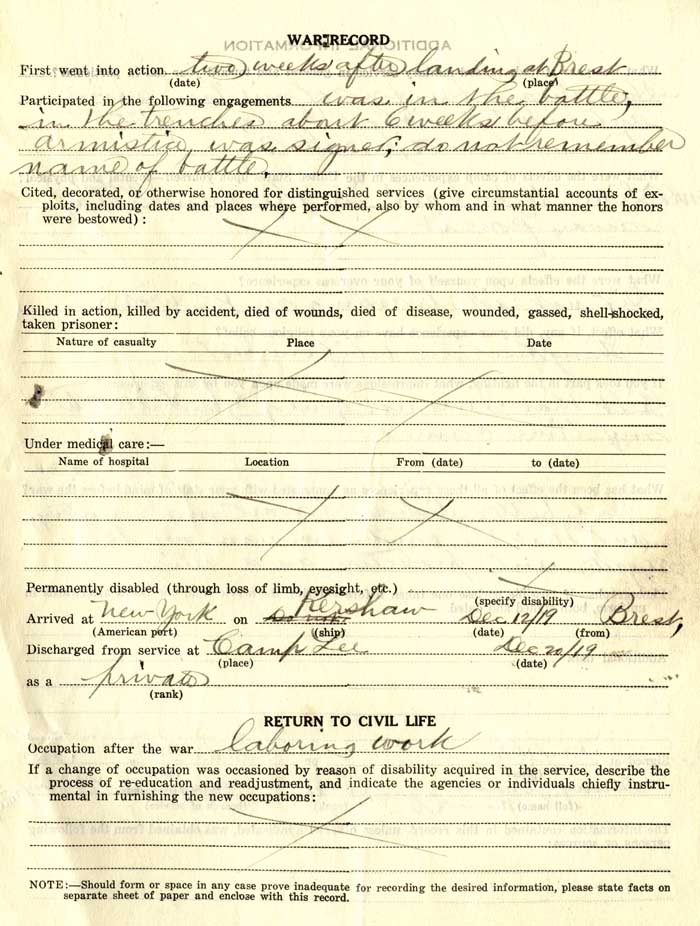 WAR RECORD
First went into action two weeks after landing at Brest
(date) (place)
Participated in the following engagements was in the battle,
in the trenches about 6 weeks before
armistice was signed; do not remember
name of battle.
Cited, decorated, or otherwise honored for distinguished services (give circumstantial accounts of ex-
ploits, including dates and places where performed, also by whom and in what manner the honors
were bestowed):
Killed in action, killed by accident, died of wounds, died of disease, wounded, gassed, shell-shocked,
taken prisoner:
Nature of casualty Place Date
Under medical care:—
Name of hospital Location From (date) to (date)
Permanently disabled (through loss of limb, eyesight, etc.)
(specify disability)
Arrived at New York on Kershaw Dec 12/19 Brest,
(American port) (ship) (date) (from)
Discharged from service at Camp Lee Dec 20/19
(place) (date)
as a private
(rank)
RETURN TO CIVIL LIFE
Occupation after the war laboring work
If a change of occupation was occasioned by reason of disability acquired in the service, describe the
process of re-education and readjustment, and indicate the agencies or individuals chiefly instru-
mental in furnishing the new occupations:
NOTE:—Should form or space in any case prove inadequate for recording the desired information, please state facts on
separate sheet of paper and enclose with this record.